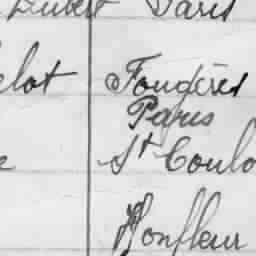 Paris
elot Fougères
Paris
St Coulo
Honfleur